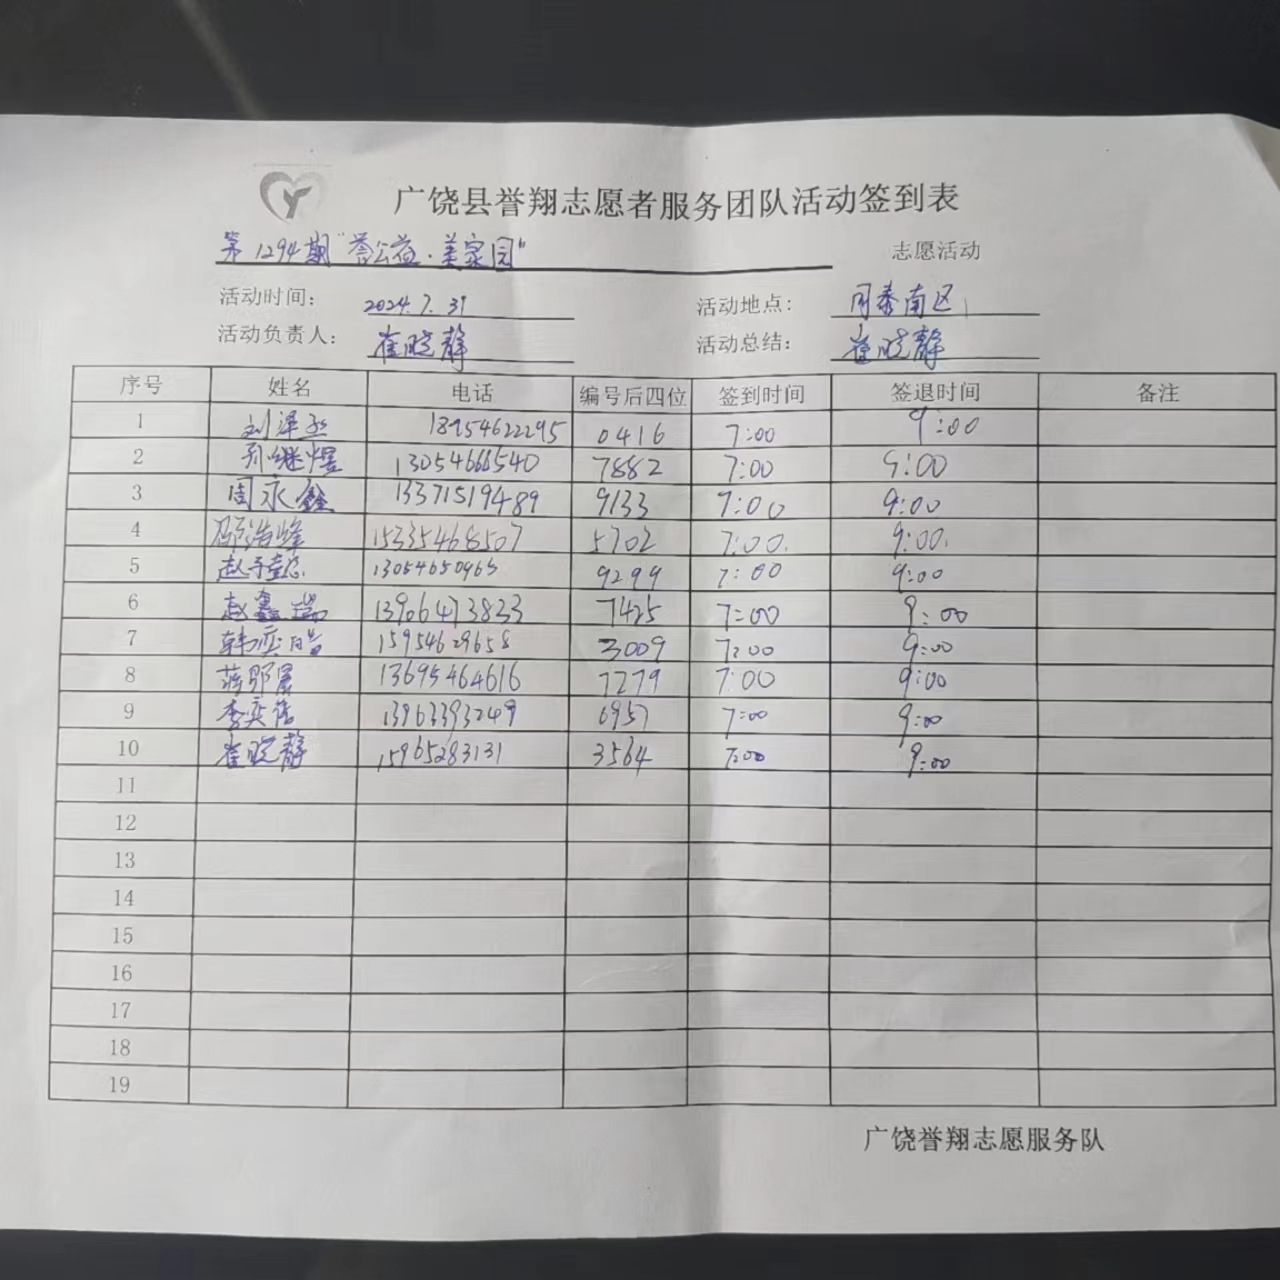 广饶县誉翔志愿者服务团队活动签到表
第1294期"誉公益·美家园" 志愿活动
活动时间: 2024.7.31 活动地点: 同泰南区
活动负责人: 崔晓静 活动总结: 崔晓静
序号 姓名 电话 编号后四位 签到时间 签退时间 备注
1 刘泽丞 18954622295 0416 7:00 9:00
2 孙继煜 13054666540 7882 7:00 9:00
3 周永鑫 13371519489 9133 9:00 9:00
4 浩峰 15335468507 5702 7:00. 9:00.
5 赵子懿 13054650965 9299 7:00 9:00
6 赵鑫瑞 13906473833 7425 7:00 9:00
7 韩奕皓 15954629658 3009 7:00 9:00
8 蒋鄂晨 13695464616 7279 7:00 9:00
9 李奕信 13963393249 6957 7:00 9:00
10 崔晓静 15965283131 3564 7:00 9:00
11
12
13
14
15
16
17
18
19
广饶誉翔志愿服务队